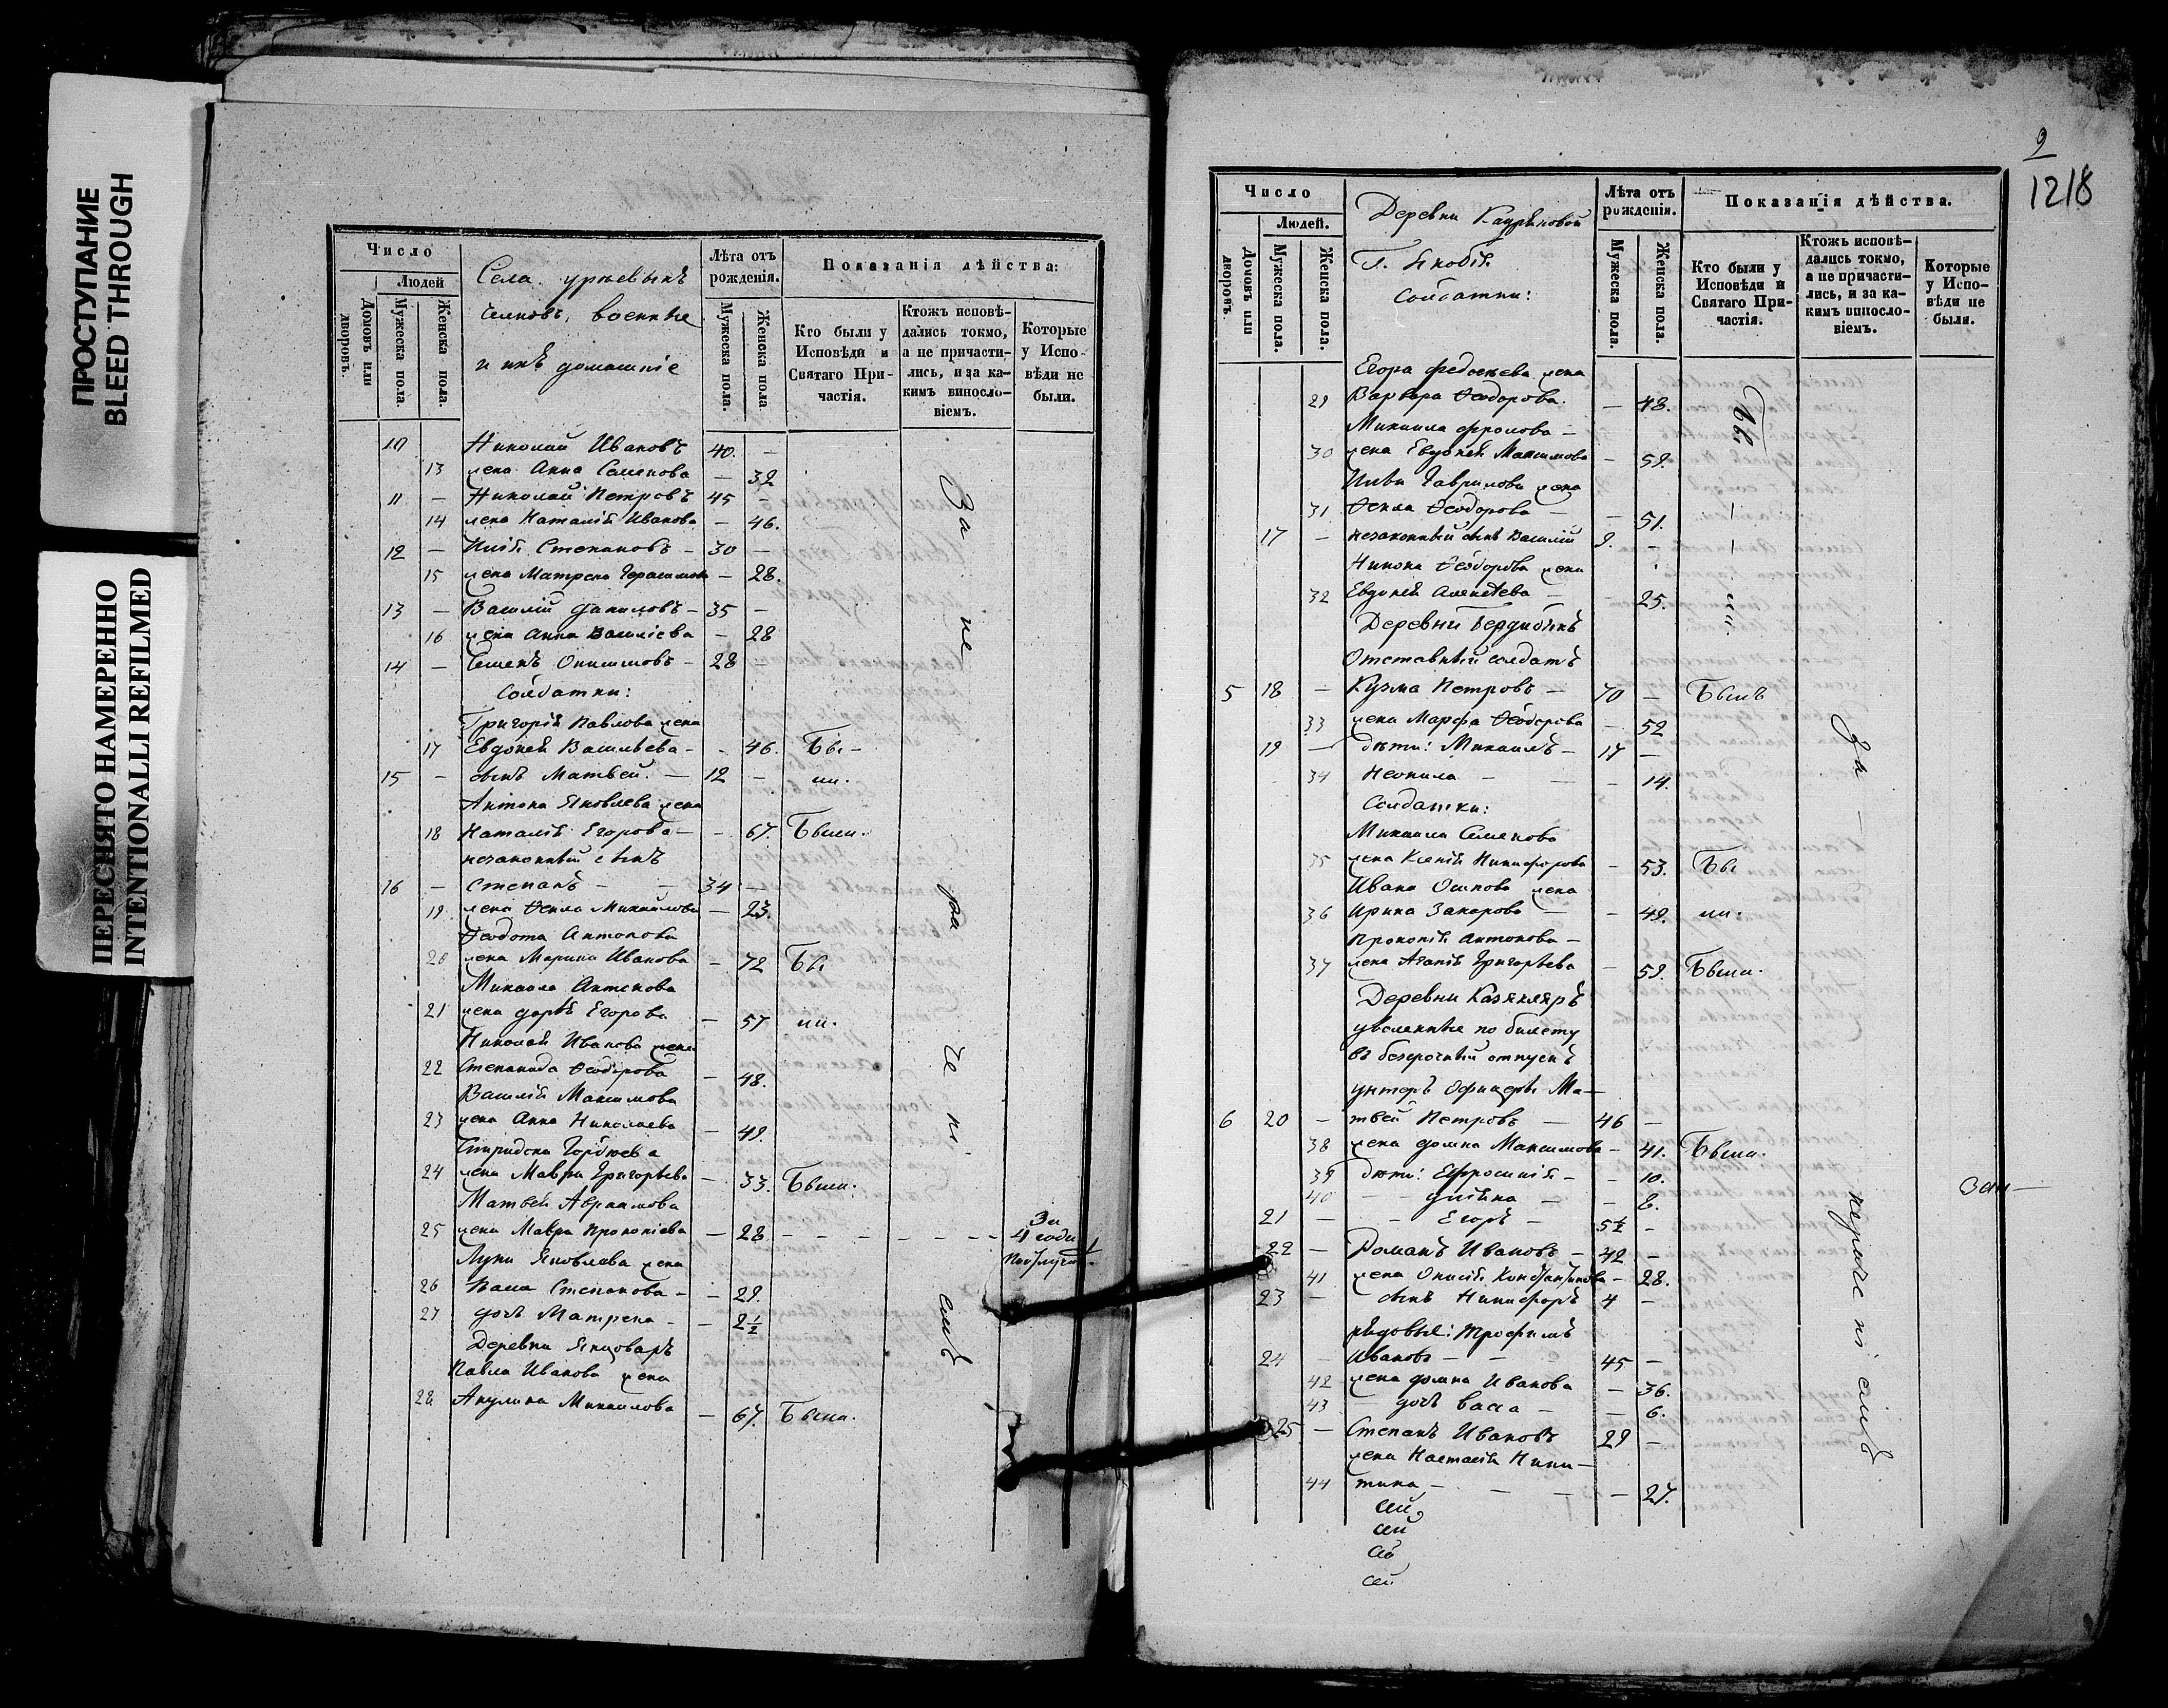 ПРОСТУПАНИЕ
BLEED THROUGH
ПЕРЕСНЯТО НАМЕРЕННО
INTENTIONALLI REFILMED
Число
Людей
Домовъ или дворовъ.
Мужеска пола.
Женска пола.
Села
военные
и ихъ домашніе
Лѣта отъ рожденія.
Мужеска пола.
Женска пола
Показанія дѣйства:
Кто были у Исповѣди и Святаго Причастія.
Ктожъ исповѣдались токмо, а не причастились, и за какимъ винословіемъ.
Которые у Исповѣди не были.
10 Николай Ивановъ 40. —
13 жена Анна Семенова — 32
11 — Николай Петровъ 45 —
14 жена Наталія Иванова — 46.
12 — Илія Степановъ — 30 —
15 жена Матрена Герасимова — 28.
13 — Василій Даниловъ — 35 —
16 жена Анна Василіева — 28
14 — Семенъ Онисимовъ — 28 —
Солдатки:
Григорія Павлова жена
17 Евдокея Васильева — - 46. Бы-
15 — сынъ Матвей. — 12 — ли.
Антона Яковлева жена
18 Наталія Егорова — - 67. Были.
незаконный сынъ
16 — Степанъ — — 34 —
19 жена Ѳекла Михайлова — 23.
Ѳеодота Антонова
20 жена Марина Иванова — 72 Бы
Михаила Антонова
21 жена Дарья Егорова — 57 ли.
Николая Иванова жена
22 Степанида Ѳеодорова — 48.
Василія Максимова
23 жена Анна Николаева — 49.
Спиридона Гордеева
24 жена Мавра Григорьева — 33. Были.
Матвея Абрамова
25 жена Мавра Прокопіева — 28. - - - - - - - За 4 года
Луки Яковлева жена
26 Васса Степанова — - 29.
27 дочь Матрена — - 2½
Деревни Янцоваръ
Павла Иванова жена
28 Акулина Михаилова — 67. Были.
За не ра че ні емъ
9
1218
Число
Людей.
Домовъ или дворовъ.
Мужеска пола.
Женска пола.
Деревни
Г. Якобія
Солдатки:
Лѣта отъ рожденія.
Мужеска пола.
Женска пола.
Показанія дѣйства.
Кто были у Исповѣди и Святаго Причастія.
Ктожъ исповѣдались токмо, а не причастились, и за какимъ винословіемъ.
Которые у Исповѣди не были.
Егора Федосеева жена
29 Варвара Ѳеодорова. — 48. Бы
Михаила Фролова —
30 жена Евдокея Максимова — 59.
Ильи Гаврилова жена
31 Ѳекла Ѳеодорова — — 51.
17 — незаконный сынъ Василій 9. -
Никона Ѳеодорова жена
32 Евдокея Алексѣева — 25. ли.
Деревни
Отставный солдатъ
5 18 — Кузма Петровъ — 70 — Былъ
33 жена Марфа Ѳеодорова — 52
19 — дѣти: Михаилъ — 17 —
34 Неонила — — 14.
Солдатки:
Михаила Семенова
35 жена Ксенія Никифорова — 53. Бы
Ивана Осипова жена
36 Ирина Захарова — - 49. ли.
Прокопія Антонова —
37 жена Агапія Григорьева — 59. Были.
Деревни Казякляръ
уволенные по билету
въ безсрочный отпускъ
унтеръ Офицеръ Ма—
6 20 — твей Петровъ — 46 —
38 жена Домна Максимова — 41. Были.
39 дѣти: Ефросинія — - 10.
40 - - Уліяна — - 8.
21 — - Егоръ — 5½ -
22 — Романъ Ивановъ — 42 —
41 жена Онисія Константинова — 28.
23 — сынъ Никифоръ 4 —
рядовые: Трофимъ
24 — Ивановъ — - 45 —
42 жена Домна Иванова — 36.
43 дочь Васса — — 6.
25 — Степанъ Ивановъ 29 —
жена Настасія Ники—
44 тина — - - - 27.
За —
нераченіемъ